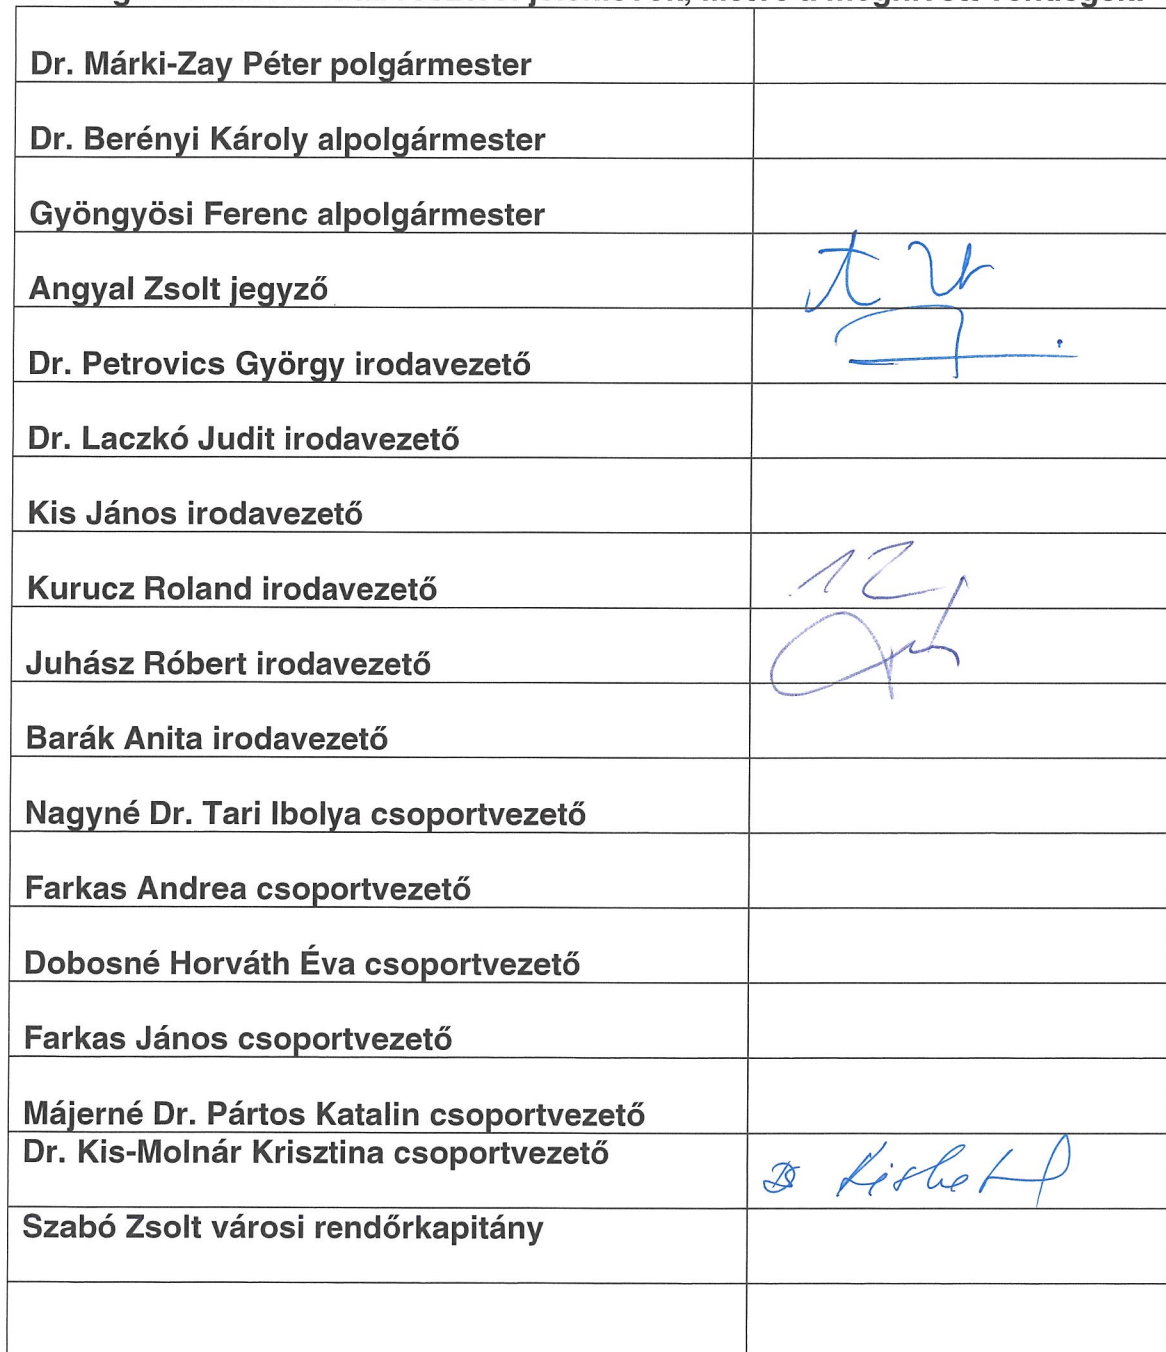 Dr. Márki-Zay Péter polgármester
Dr. Berényi Károly alpolgármester
Gyöngyösi Ferenc alpolgármester
Angyal Zsolt jegyző
Dr. Petrovics György irodavezető
Dr. Laczkó Judit irodavezető
Kis János irodavezető
Kurucz Roland irodavezető
Juhász Róbert irodavezető
Barák Anita irodavezető
Nagyné Dr. Tari Ibolya csoportvezető
Farkas Andrea csoportvezető
Dobosné Horváth Éva csoportvezető
Farkas János csoportvezető
Májerné Dr. Pártos Katalin csoportvezető
Dr. Kis-Molnár Krisztina csoportvezető
Szabó Zsolt városi rendőrkapitány